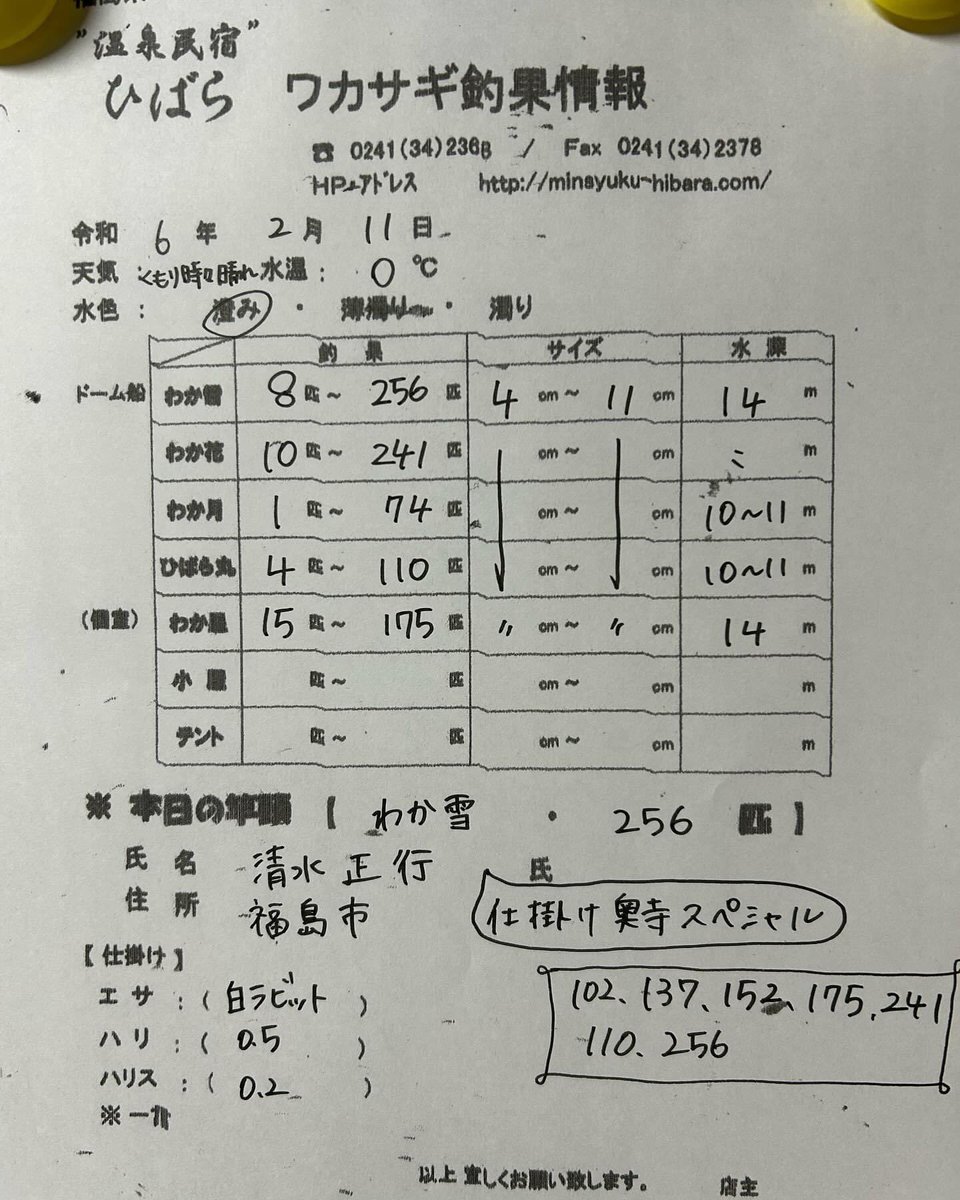 "温泉民宿"
ひばら ワカサギ釣果情報
☎ 0241(34)2368 / Fax 0241(34)2378
HPアドレス http://minsyuku-hibara.com/
令和 6 年 2 月 11 日
天気 くもり時々晴れ 水温: 0 ℃
水色 : 澄み ・ 薄濁り ・ 濁り
釣果 サイズ 水深
ドーム船 わか雪 8 匹~ 256 匹 4 cm~ 11 cm 14 m
わか花 10 匹~ 241 匹 ↓ cm~ ↓ cm 〃 m
わか月 1 匹~ 74 匹 cm~ cm 10~11 m
ひばら丸 4 匹~ 110 匹 cm~ cm 10~11 m
(個室) わか星 15 匹~ 175 匹 〃 cm~ 〃 cm 14 m
小屋 匹~ 匹 cm~ cm m
テント 匹~ 匹 cm~ cm m
※ 本日の竿頭 【 わか雪 ・ 256 匹 】
氏名 清水 正行 氏
住所 福島市
仕掛け 奥寺スペシャル
【 仕掛け 】
エサ : ( 白ラビット )
ハリ : ( 0.5 )
ハリス : ( 0.2 )
102、137、152、175、241
110、256
※一
以上 宜しくお願い致します。 店主